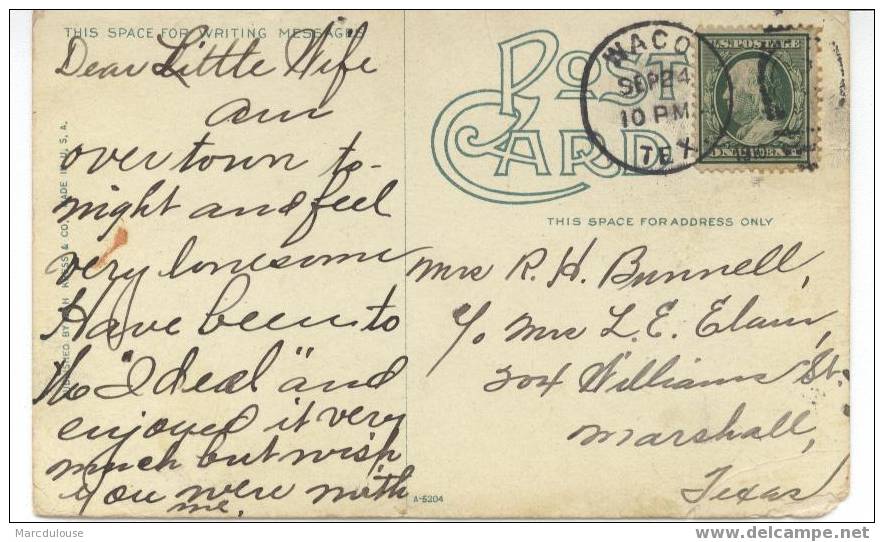 THIS SPACE FOR WRITING MESSAGES
Dear Little Wife
am
over town to-
night and feel
very lonesome
Have been to
the "Ideal" and
enjoyed it very
much but wish
you were with
me.
POST
CARD
WACO
SEP 24
10 PM
TEX
U.S. POSTAGE
THIS SPACE FOR ADDRESS ONLY
Mrs R. H. Bunnell,
c/o Mrs L. E. Elam,
304 Williams St.
Marshall,
Texas
A-5204
PUBLISHED BY S. H. KRESS & CO. MADE IN U. S. A.
Marcdulouse
www.delcampe.net